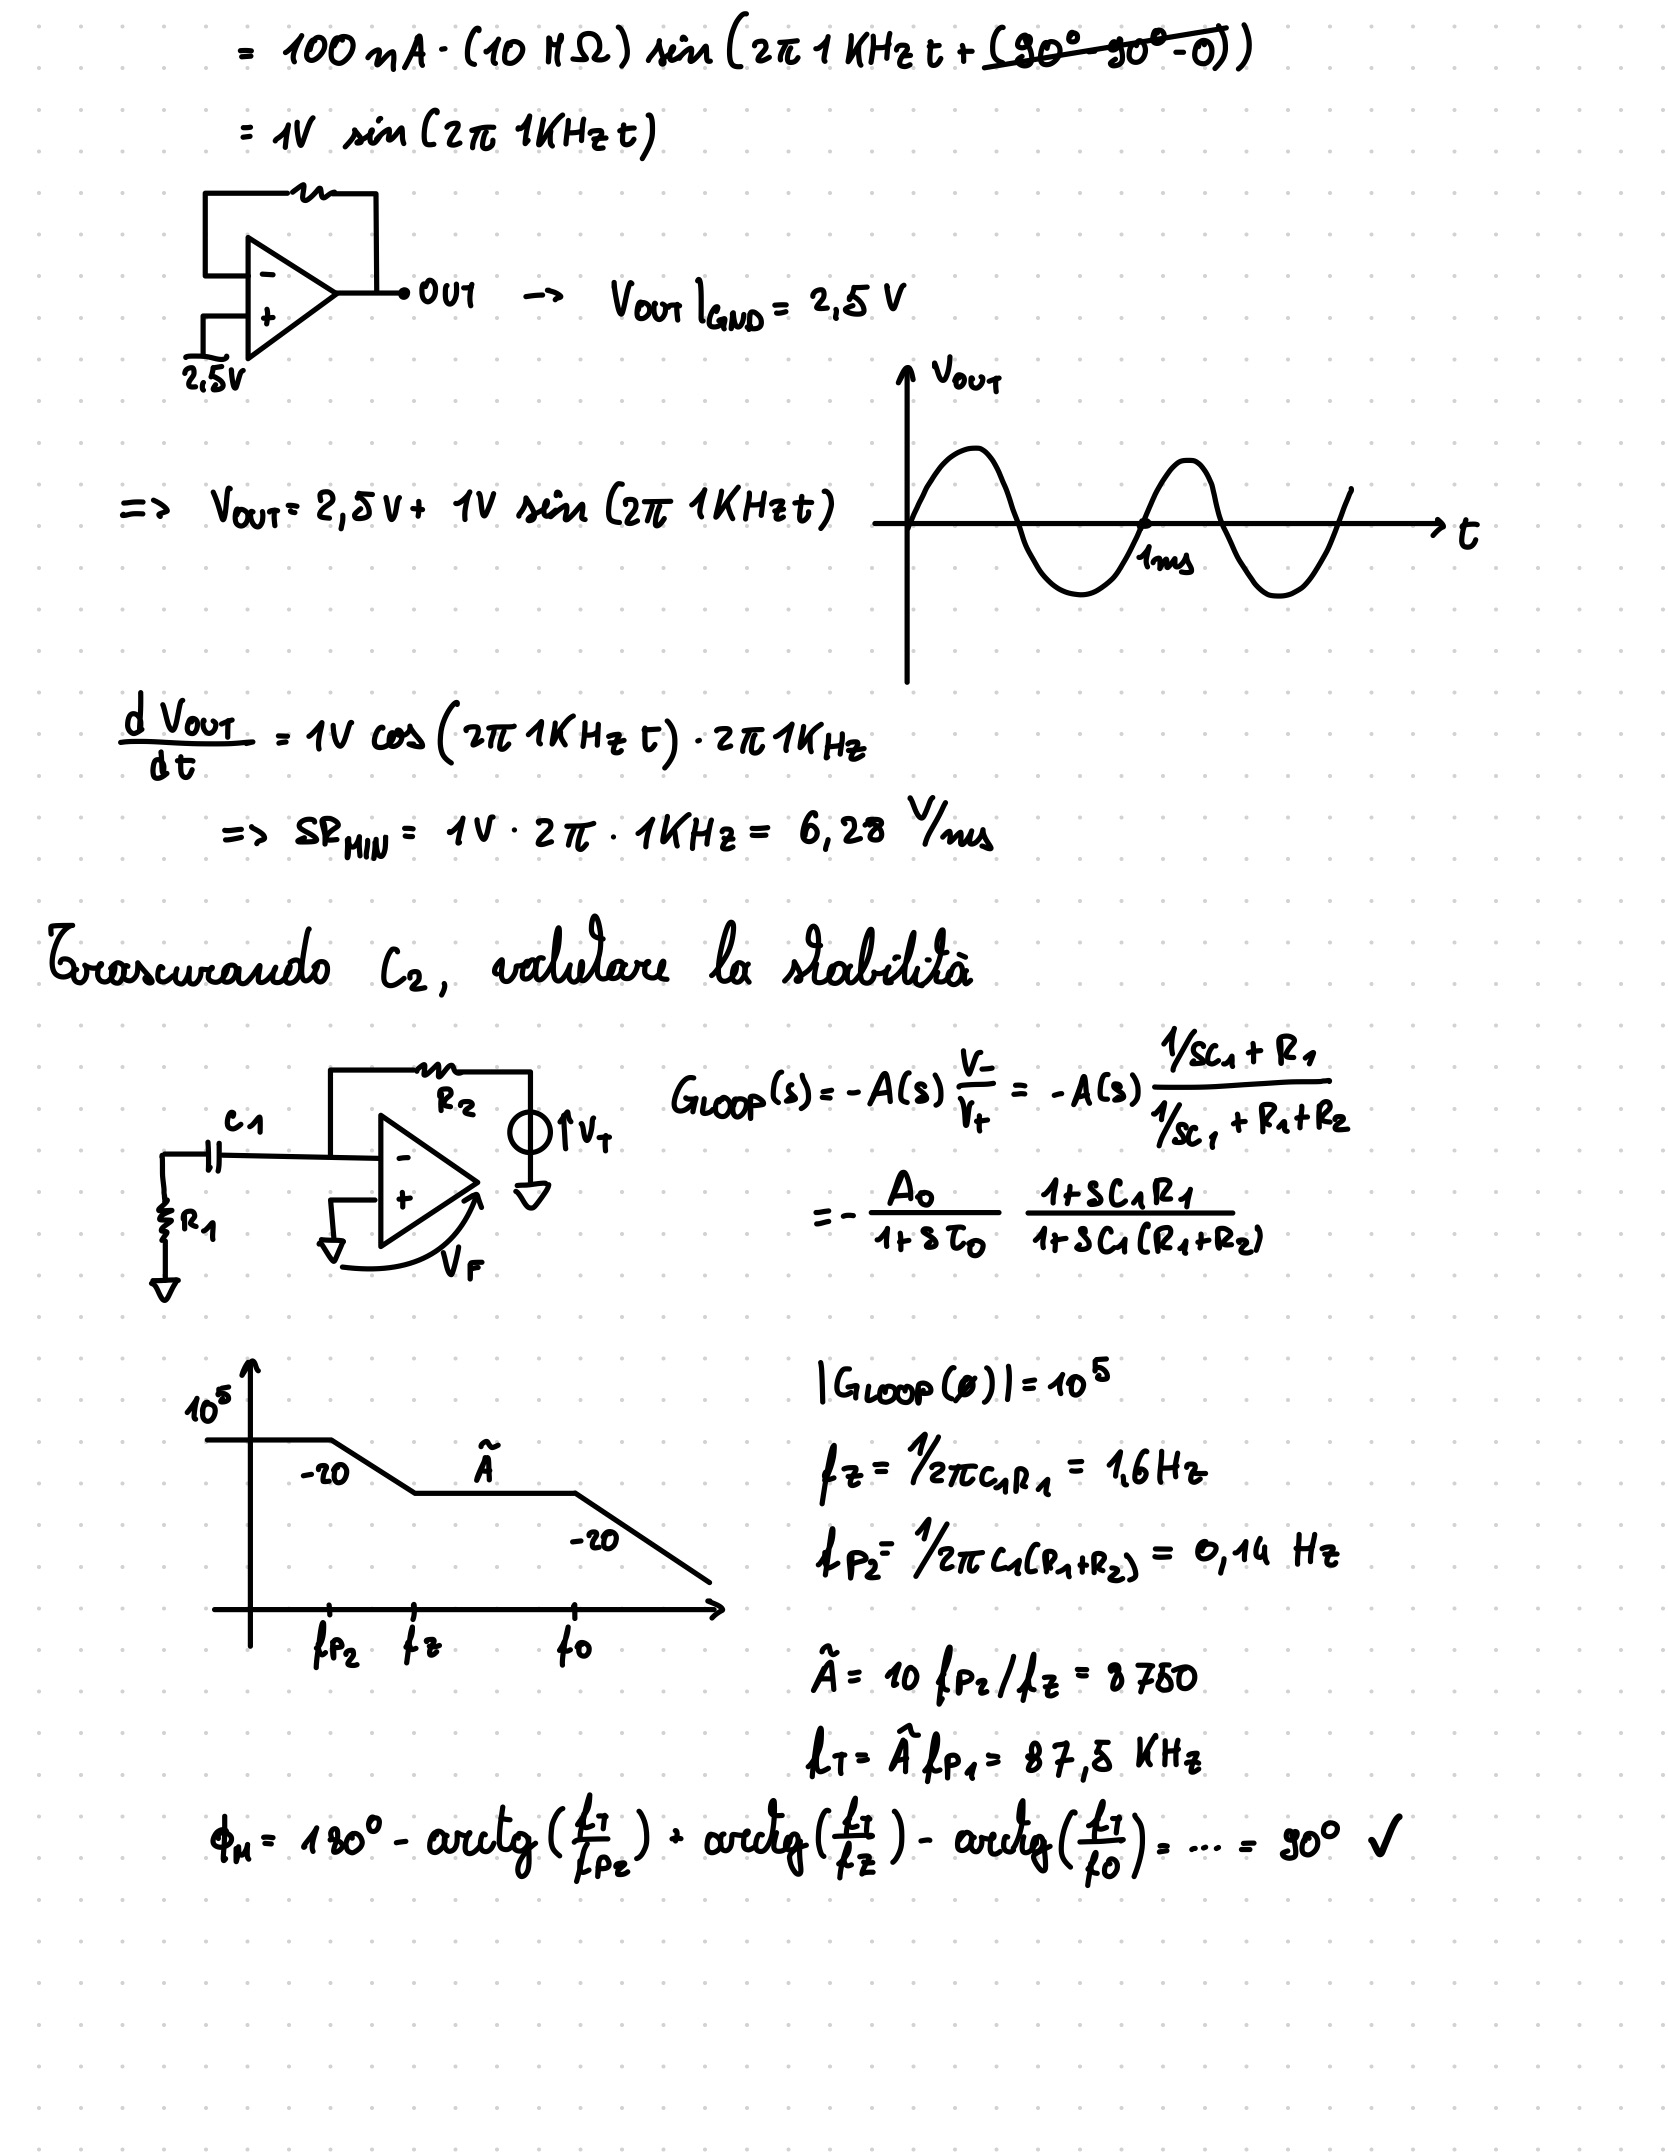 = 100 nA · (10 MΩ) sin (2π 1 KHz t + (90° - 90° - 0))
= 1V sin (2π 1KHz t)
-
+
OUT -> VOUT |GND = 2,5 V
2,5V
VOUT
=> VOUT = 2,5 V + 1V sin (2π 1KHz t)
t
1ms
d VOUT / dt = 1V cos (2π 1KHz t) · 2π 1KHz
=> SRMIN = 1V · 2π · 1KHz = 6,28 V/ms
Trascurando C2, valutare la stabilità
R2
C1
VT
-
+
R1
VF
GLOOP(s) = -A(s) V-/VT = -A(s) (1/sC1 + R1) / (1/sC1 + R1+R2)
= - A0 / (1+sτ0) (1+sC1R1) / (1+sC1(R1+R2))
10⁵
-20
Ã
-20
fP2 fz f0
|GLOOP(0)| = 10⁵
fz = 1/2πC1R1 = 1,6 Hz
fP2 = 1/2πC1(R1+R2) = 0,14 Hz
Ã = 10 fP2/fz = 8750
fT = Ã fP1 = 87,5 KHz
ϕM = 180° - arctg (fT/fP2) + arctg (fT/fz) - arctg (fT/f0) = ... = 90° ✓